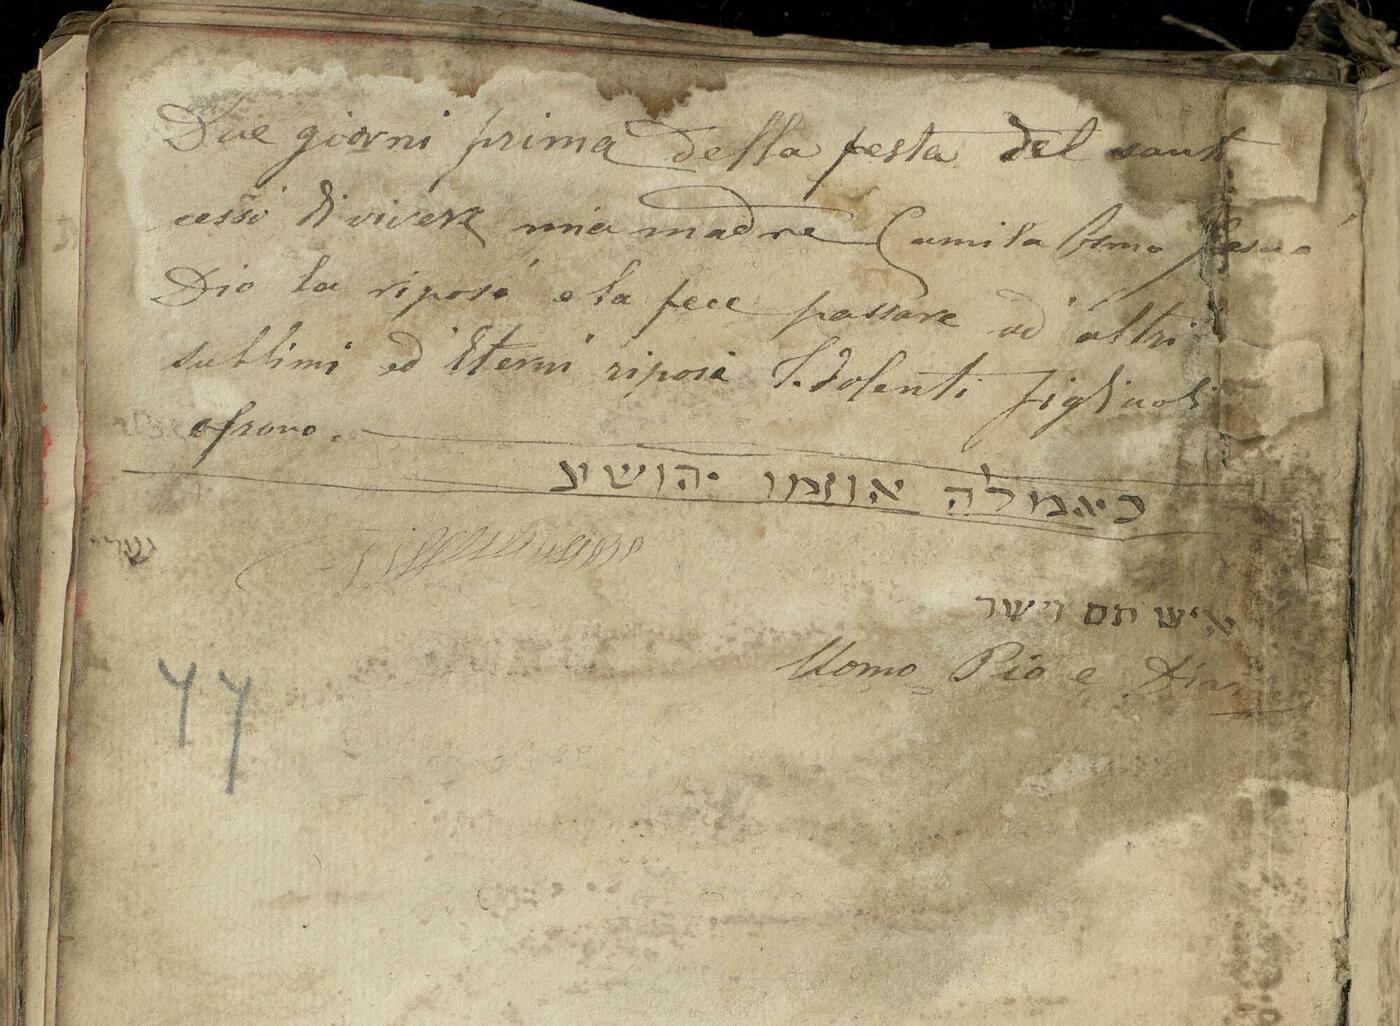 Due giorni prima della festa del sant
cessò di vivere mia madre Camila Osmo
Dio la riposò e la fece passare ad altri
sublimi ed Eterni riposi I dolenti figliuoli
כיאמלה אוזמו יהושע
איש תם וישר
Uomo Pio e
44